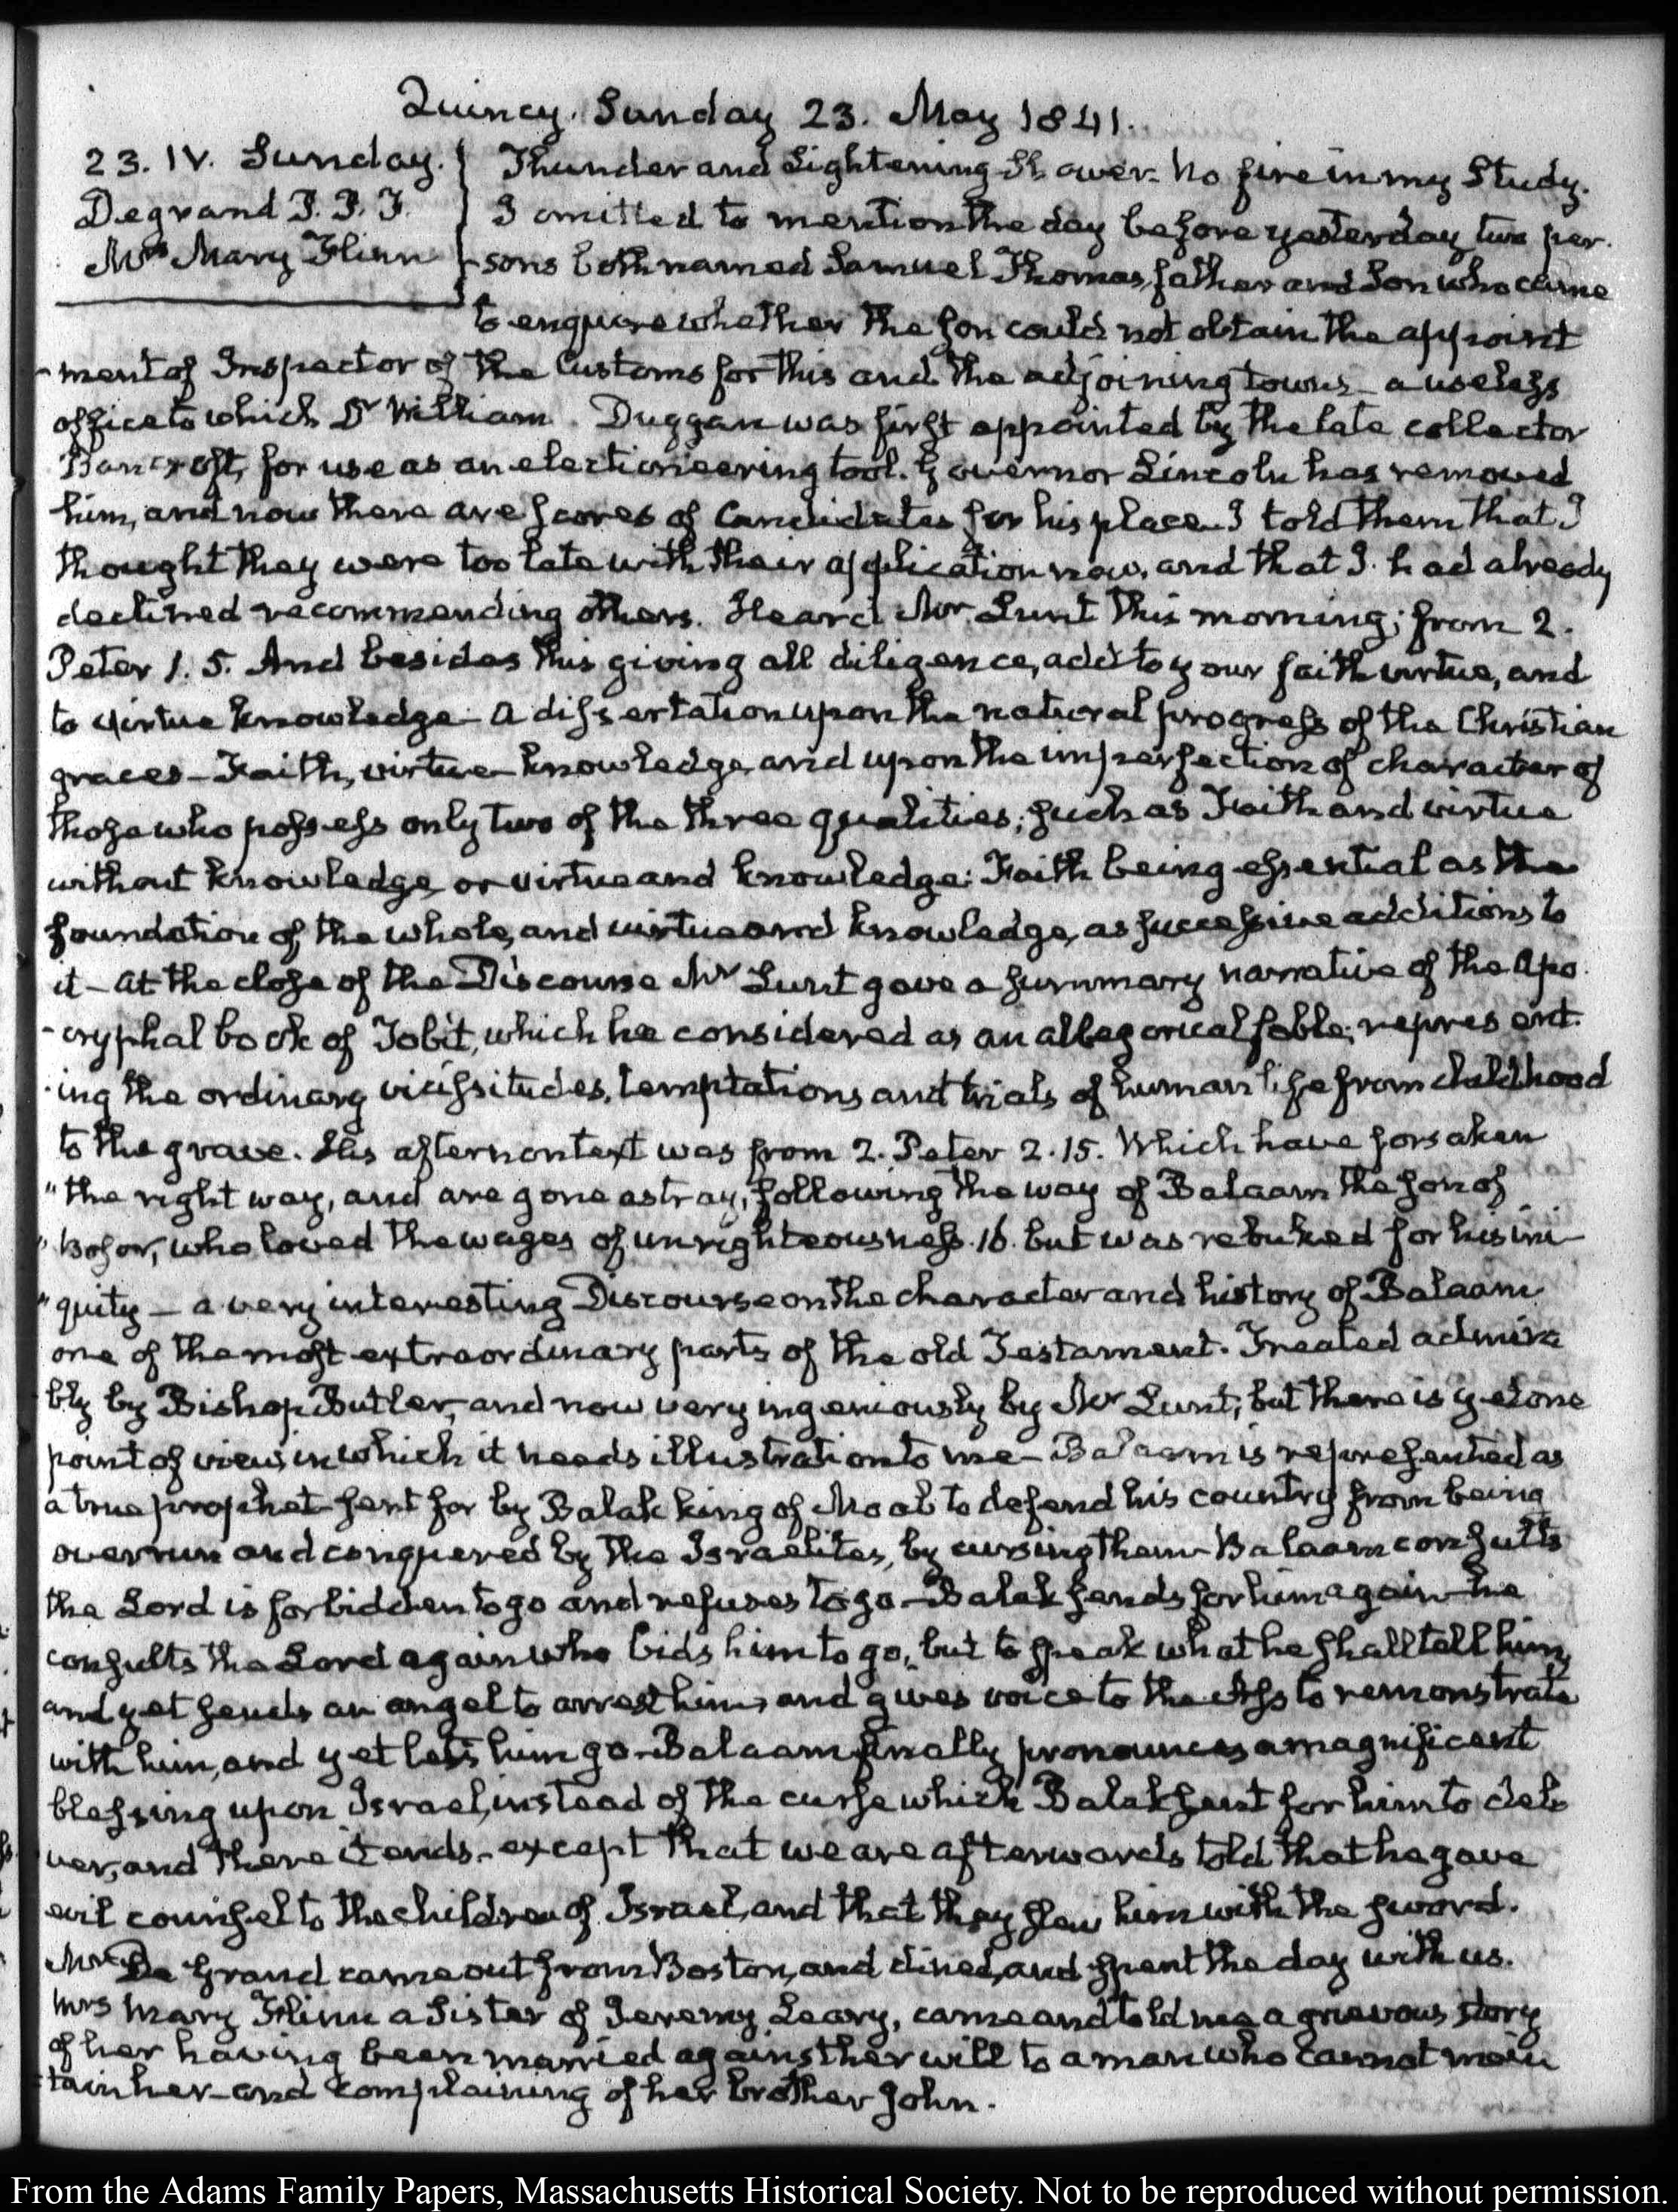 Quincy. Sunday 23. May 1841.
23. IV. Sunday.
Degrand P. P. F.
Mrs Mary Flinn
Thunder and Lightening Shower. No fire in my Study.
I omitted to mention the day before yesterday two per-
-sons both named Samuel Thomas, father and Son who came
to enquire whether the son could not obtain the appoint
-ment of Inspector of the Customs for this and the adjoining towns— a useless
office to which Dr William Duggan was first appointed by the late collector
Bancroft, for use as an electioneering tool. Governor Lincoln has removed
him, and now there are scores of Candidates for his place. I told them that I
thought they were too late with their application now, and that I had already
declined recommending others. Heard Mr Lunt this morning; from 2.
Peter 1. 5. And besides this giving all diligence, add to your faith virtue, and
to virtue knowledge— a dissertation upon the natural progress of the Christian
graces— Faith, virtue knowledge, and upon the imperfection of character of
those who possess only two of the three qualities; such as Faith and virtue
without knowledge, or virtue and knowledge: Faith being essential as the
foundation of the whole, and virtue and knowledge, as successive additions to
it— at the close of the Discourse Mr Lunt gave a summary narrative of the Apo
-cryphal book of Tobit, which he considered as an allegorical fable; represent-
-ing the ordinary vicissitudes, temptations and trials of human life from childhood
to the grave. His afternontext was from 2. Peter 2. 15. Which have forsaken
"the right way, and are gone astray, following the way of Balaam the son of
"Bosor, who loved the wages of unrighteousness. 16. but was rebuked for his ini-
"quity— a very interesting Discourse on the character and history of Balaam
one of the most extraordinary parts of the old Testament. Treated admira
bly by Bishop Butler, and now very ingeniously by Mr Lunt; but there is yet one
point of view in which it needs illustration to me— Balaam is represented as
a true prophet sent for by Balak king of Moab to defend his country from being
overrun and conquered by the Israelites, by cursing them— Balaam consults
the Lord is forbidden to go and refuses to go— Balak sends for him again— he
consults the Lord again who bids him to go, but to speak what he shall tell him,
and yet sends an angel to arrest him, and gives voice to the Ass to remonstrate
with him, and yet lets him go— Balaam finally pronounces a magnificent
blessing upon Israel, instead of the curse which Balak sent for him to deli
ver, and there it ends— except that we are afterwards told that he gave
evil counsel to the children of Israel, and that they slew him with the sword.
Mr De Grand came out from Boston, and dined, and spent the day with us.
Mrs Mary Flinn a Sister of Jeremy Leary, came and told me a grievous story
of her having been married against her will to a man who cannot main
-tain her— and complaining of her brother John.
From the Adams Family Papers, Massachusetts Historical Society. Not to be reproduced without permission.